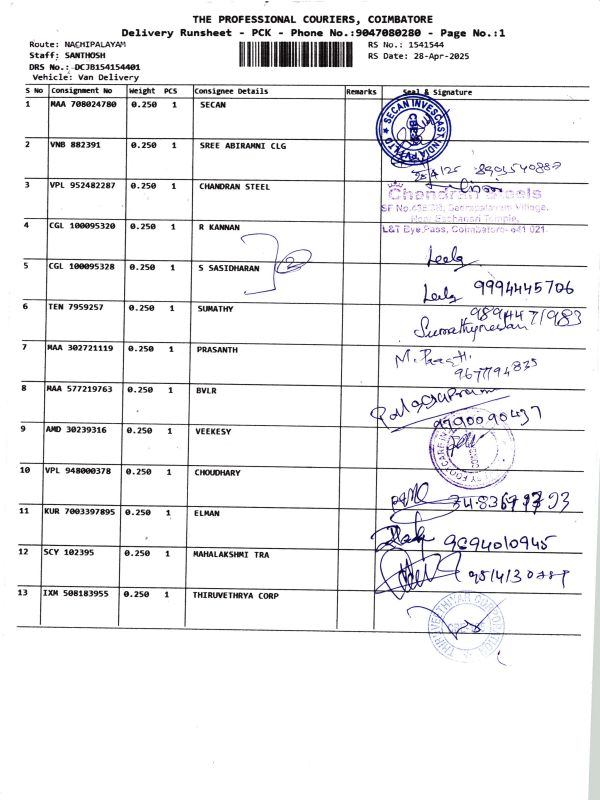 THE PROFESSIONAL COURIERS, COIMBATORE
Delivery Runsheet - PCK - Phone No.:9047080280 - Page No.:1
Route: NACHIPALAYAM RS No.: 1541544
Staff: SANTHOSH RS Date: 28-Apr-2025
DRS No.: DCJB154154401
Vehicle: Van Delivery
S No Consignment No Weight PCS Consignee Details Remarks Seal & Signature
1 MAA 708024780 0.250 1 SECAN
SECAN INVESCAST INDIA PVT LTD
2 VNB 882391 0.250 1 SREE ABIRAMNI CLG
3 VPL 952482287 0.250 1 CHANDRAN STEEL
Chandran Steels
L&T Bye Pass, Coimbatore- 641 021.
4 CGL 100095320 0.250 1 R KANNAN
Leela
5 CGL 100095328 0.250 1 S SASIDHARAN 2
Leela 9994445706
6 TEN 7959257 0.250 1 SUMATHY
9894471983
7 MAA 302721119 0.250 1 PRASANTH
8 MAA 577219763 0.250 1 BVLR
9790090437
9 AMD 30239316 0.250 1 VEEKESY
10 VPL 948000378 0.250 1 CHOUDHARY
11 KUR 7003397895 0.250 1 ELMAN
9694010945
12 SCY 102395 0.250 1 MAHALAKSHMI TRA
13 IXM 508183955 0.250 1 THIRUVETHRYA CORP